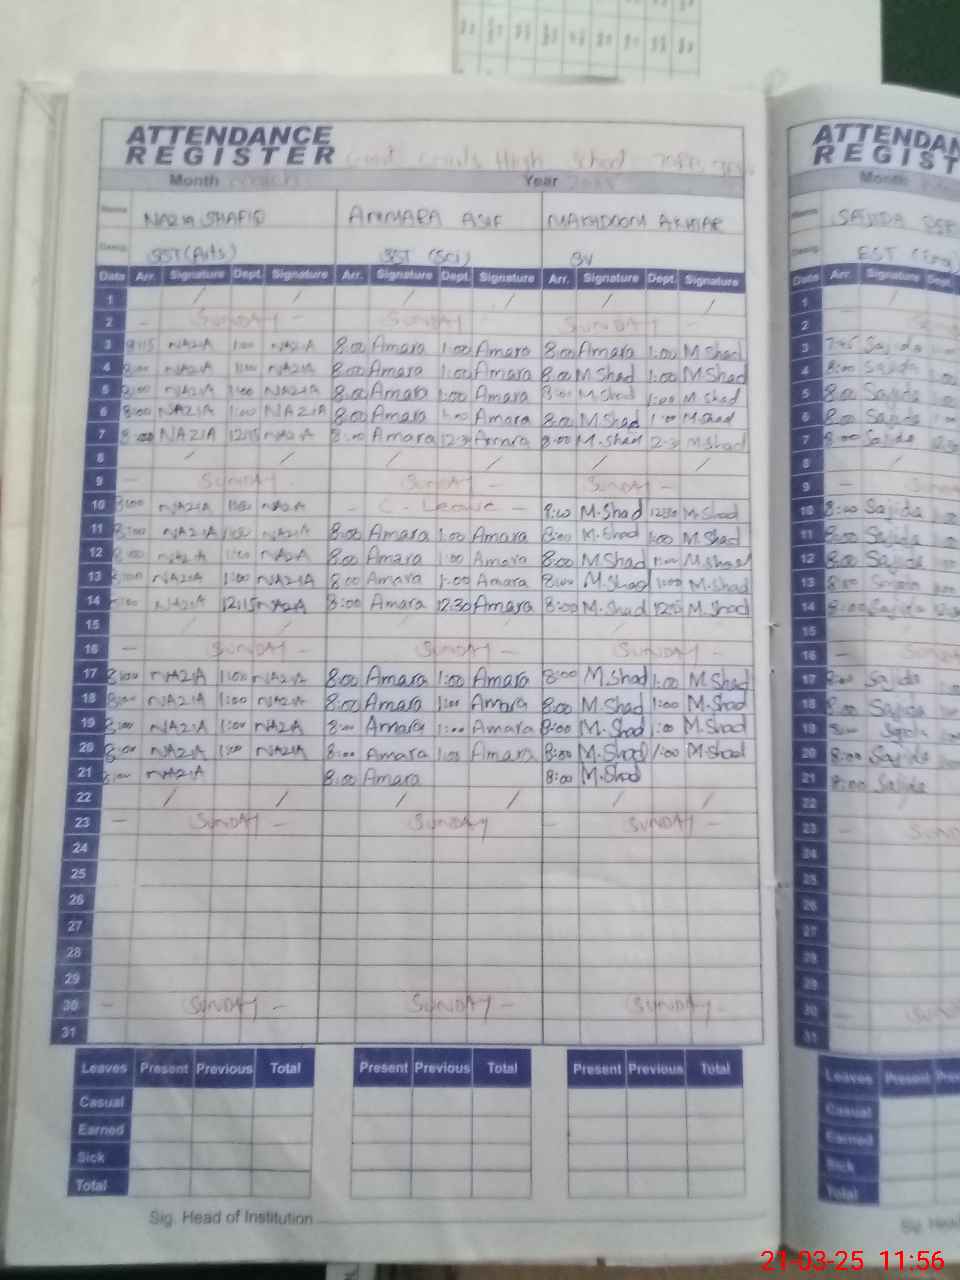 ATTENDANCE
REGISTER High School
Month Year
Name NAZIA SHAFIQ AMMARA ASIF MAKHDOOM AKHTAR
Desig. SST (Arts) SST (Sci)
Date Arr. Signature Dept. Signature Arr. Signature Dept. Signature Arr. Signature Dept. Signature
1 / / / / / /
2 - SUNDAY - SUNDAY - SUNDAY -
3 NAZIA 1:00 NAZIA 8:00 Amara 1:00 Amara 8:00 Amara 1:00 M Shad
4 8:00 NAZIA 1:00 NAZIA 8:00 Amara 1:00 Amara 8:00 M Shad 1:00 M Shad
5 8:00 NAZIA 1:00 NAZIA 8:00 Amara 1:00 Amara 8:00 M Shad 1:00 M Shad
6 8:00 NAZIA 1:00 NAZIA 8:00 Amara 1:00 Amara 8:00 M Shad 1:00 M Shad
7 8:00 NAZIA 12:15 NAZIA 8:00 Amara 12:3 Amara 8:00 M.Shad 12:3 M Shad
8 / / / / / /
9 - SUNDAY - SUNDAY - SUNDAY -
10 8:00 NAZIA 1:00 NAZIA - C-Leave - 8:00 M.Shad 12:30 M.Shad
11 8:00 NAZIA 1:00 NAZIA 8:00 Amara 1:00 Amara 8:00 M.Shad 1:00 M.Shad
12 8:00 NAZIA 1:00 NAZIA 8:00 Amara 1:00 Amara 8:00 M.Shad 1:00 M.Shad
13 8:00 NAZIA 1:00 NAZIA 8:00 Amara 1:00 Amara 8:00 M.Shad 1:00 M.Shad
14 8:00 NAZIA 12:15 NAZIA 8:00 Amara 12:30 Amara 8:00 M.Shad M.Shad
15
16 - SUNDAY - SUNDAY - SUNDAY -
17 8:00 NAZIA 1:00 NAZIA 8:00 Amara 1:00 Amara 8:00 M.Shad 1:00 M.Shad
18 8:00 NAZIA 1:00 NAZIA 8:00 Amara 1:00 Amara 8:00 M.Shad 1:00 M.Shad
19 8:00 NAZIA 1:00 NAZIA 8:00 Amara 1:00 Amara 8:00 M.Shad 1:00 M.Shad
20 8:00 NAZIA 1:00 NAZIA 8:00 Amara 1:00 Amara 8:00 M.Shad 1:00 M.Shad
21 8:00 NAZIA 8:00 Amara 8:00 M.Shad
22 / / / / / /
23 - SUNDAY - SUNDAY - SUNDAY -
24
25
26
27
28
29
30 - SUNDAY - SUNDAY - SUNDAY -
31
Leaves Present Previous Total Present Previous Total Present Previous Total
Casual
Earned
Sick
Total
Sig. Head of Institution
ATTENDAN
REGIST
Month
Name SAJIDA
Desig. EST
Date Arr. Signature Dept.
1 /
2 -
3 7:45 Sajida
4 8:00 Sajida
5 8:00 Sajida
6 8:00 Sajida
7 8:00 Sajida
8 /
9 -
10 8:00 Sajida
11 8:00 Sajida
12 8:00 Sajida
13 8:00 Sajida
14 8:00 Sajida
15
16 -
17 8:00 Sajida
18 8:00 Sajida
19 8:00 Sajida
20 8:00 Sajida
21 8:00 Sajida
22
23 -
24
25
26
27
28
29
30 -
31
Leaves Present
Casual
Earned
Sick
Total
Sig. Head
21-03-25 11:56